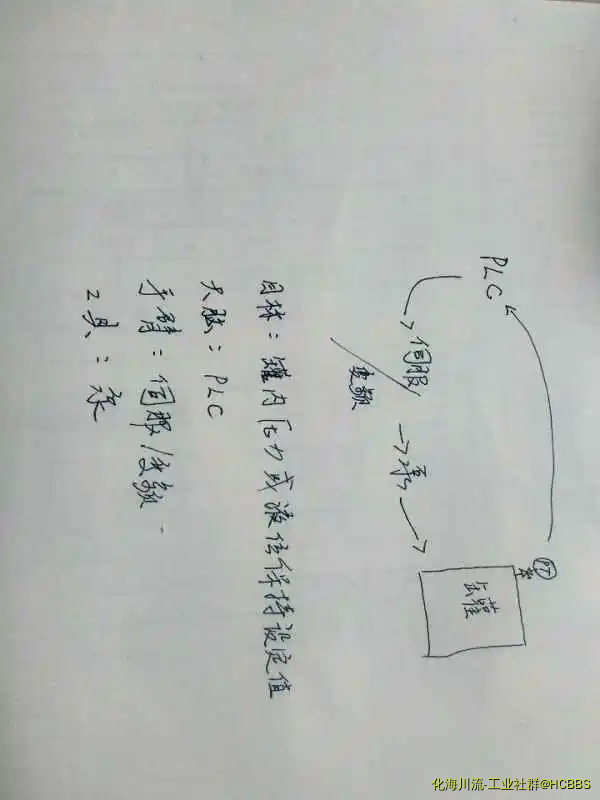 PLC
伺服
变频
泵
PT
云罐
目标：罐内压力或液位保持设定值
大脑：PLC
手臂：伺服/变频.
工具：泵
化海川流-工业社群@HCBBS